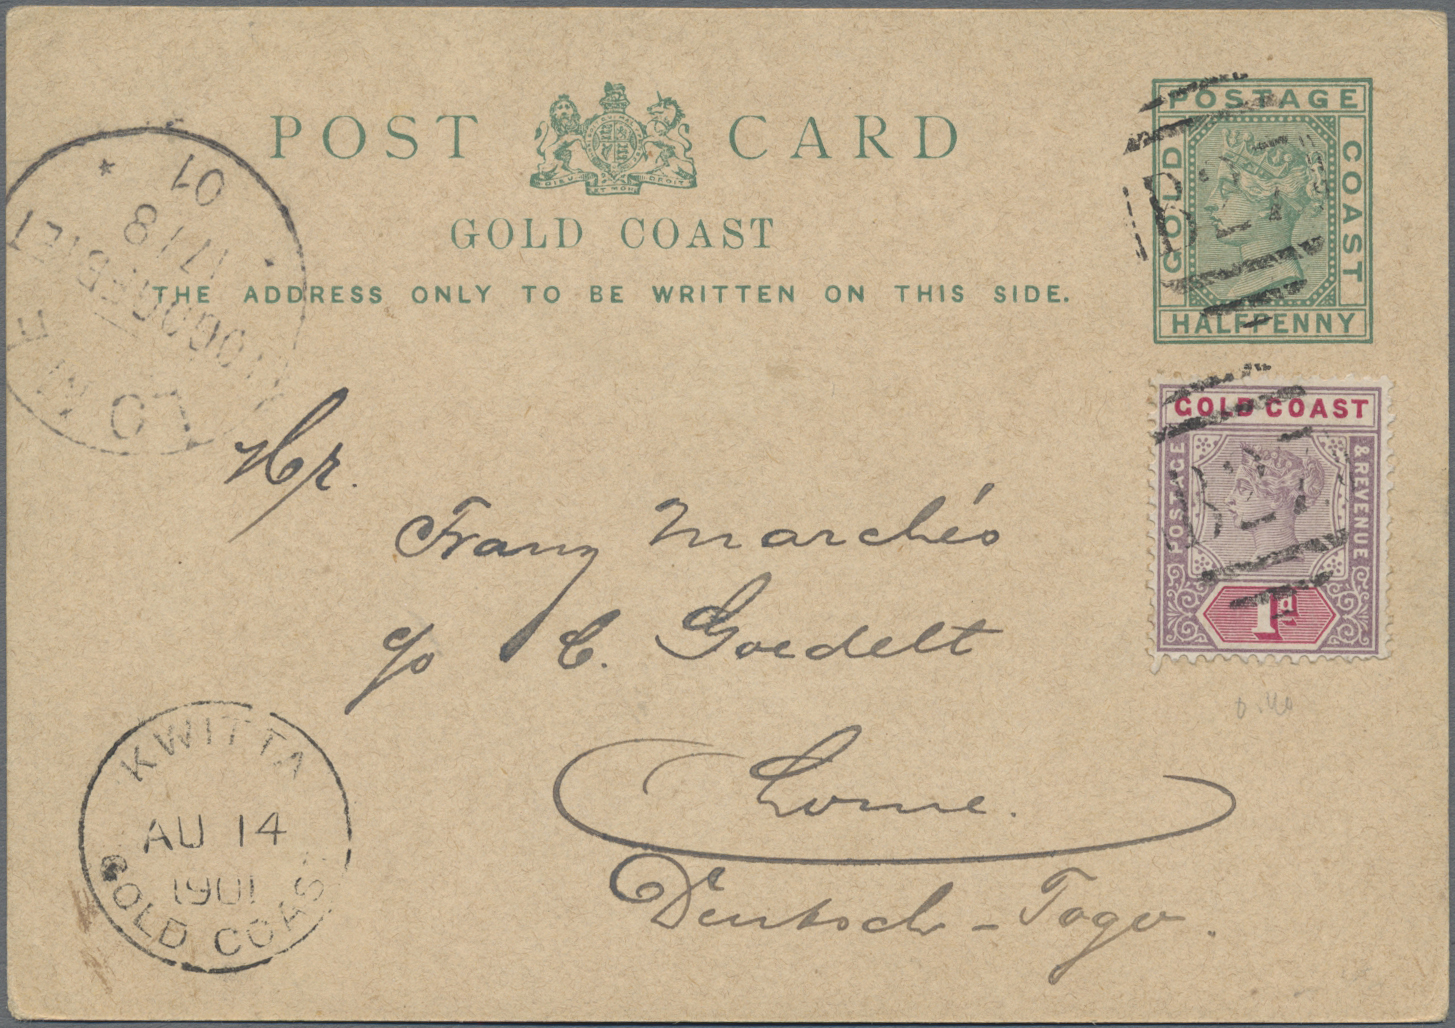 POST CARD
DIEU ET MON DROIT
GOLD COAST
THE ADDRESS ONLY TO BE WRITTEN ON THIS SIDE.
POSTAGE
GOLD
COAST
HALFPENNY
GOLD COAST
POSTAGE
& REVENUE
1d
LOME
TOGOGEBIET
17/8
01
Hr.
Franz Marchés
c/o C. Goedelt
Lome.
Deutsch-Togo.
KWITTA
AU 14
1901
GOLD COAST